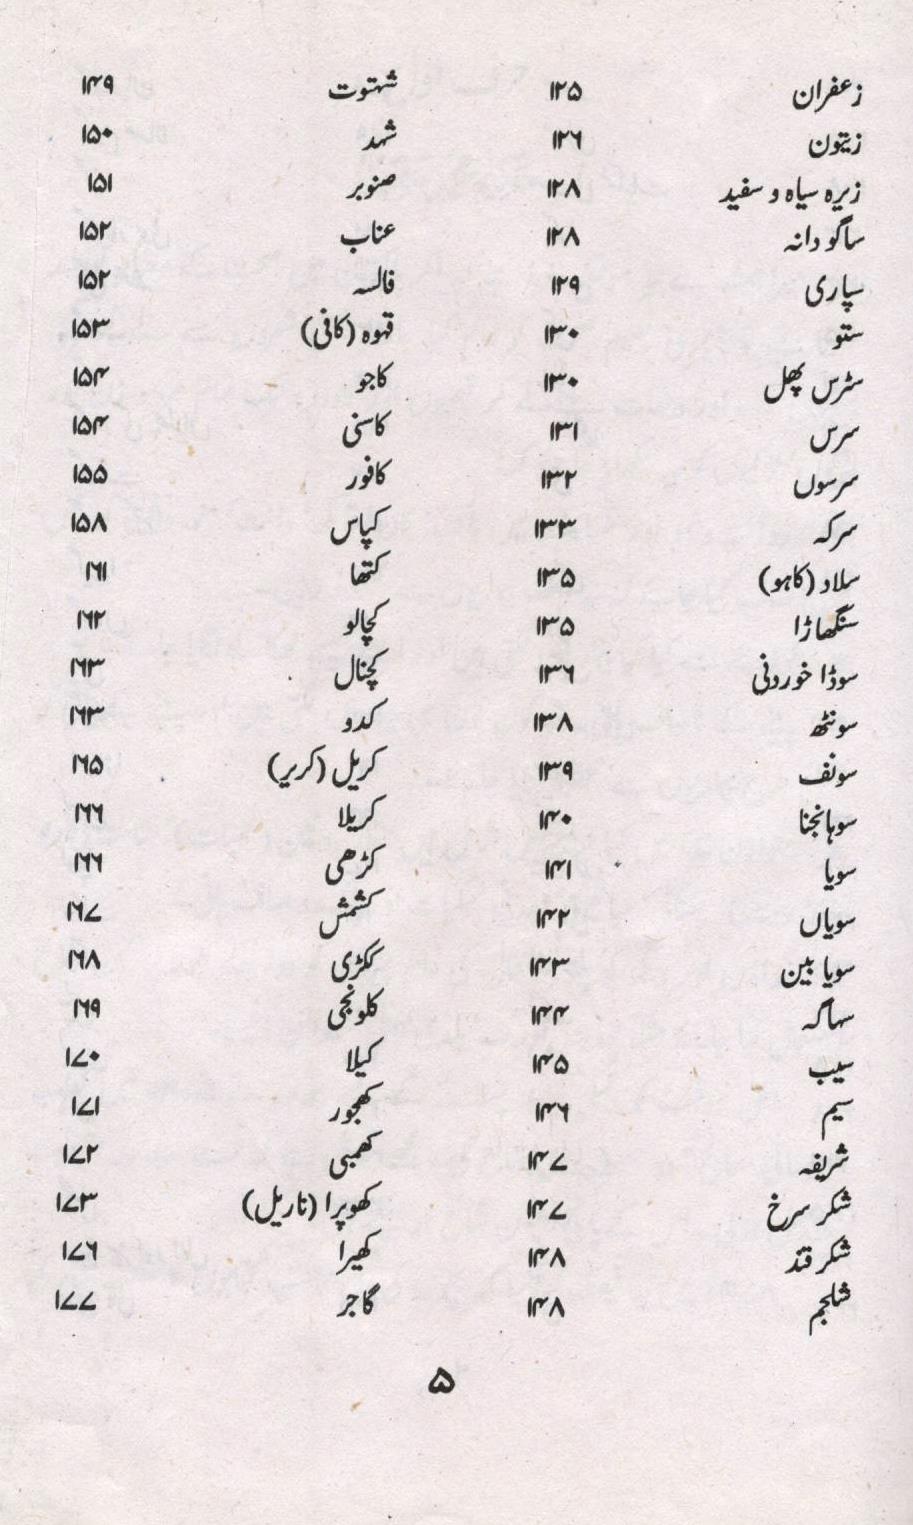 زعفران ۱۲۵
زیتون ۱۲۶
زیرہ سیاہ و سفید ۱۲۸
ساگودانہ ۱۲۸
سپاری ۱۲۹
ستو ۱۳۰
سٹرس پھل ۱۳۰
سرس ۱۳۱
سرسوں ۱۳۲
سرکہ ۱۳۳
سلاد (کاہو) ۱۳۵
سنگھاڑا ۱۳۵
سوڈا خوردنی ۱۳۶
سونٹھ ۱۳۸
سونف ۱۳۹
سوہانجنا ۱۴۰
سویا ۱۴۱
سویاں ۱۴۲
سویابین ۱۴۳
سہاگہ ۱۴۴
سیب ۱۴۵
سیم ۱۴۶
شریفہ ۱۴۷
شکر سرخ ۱۴۷
شکرقند ۱۴۸
شلجم ۱۴۸
شہتوت ۱۴۹
شہد ۱۵۰
صنوبر ۱۵۱
عناب ۱۵۲
فالسہ ۱۵۲
قہوہ (کافی) ۱۵۳
کاجو ۱۵۴
کاسنی ۱۵۴
کافور ۱۵۵
کپاس ۱۵۸
کتھا ۱۶۱
کچالو ۱۶۲
کچنال ۱۶۳
کدو ۱۶۳
کریل (کریر) ۱۶۵
کریلا ۱۶۶
کڑھی ۱۶۶
کشمش ۱۶۷
ککڑی ۱۶۸
کلونجی ۱۶۹
کیلا ۱۷۰
کھجور ۱۷۱
کھمبی ۱۷۲
کھوپرا (ناریل) ۱۷۳
کھیرا ۱۷۶
گاجر ۱۷۷
۵